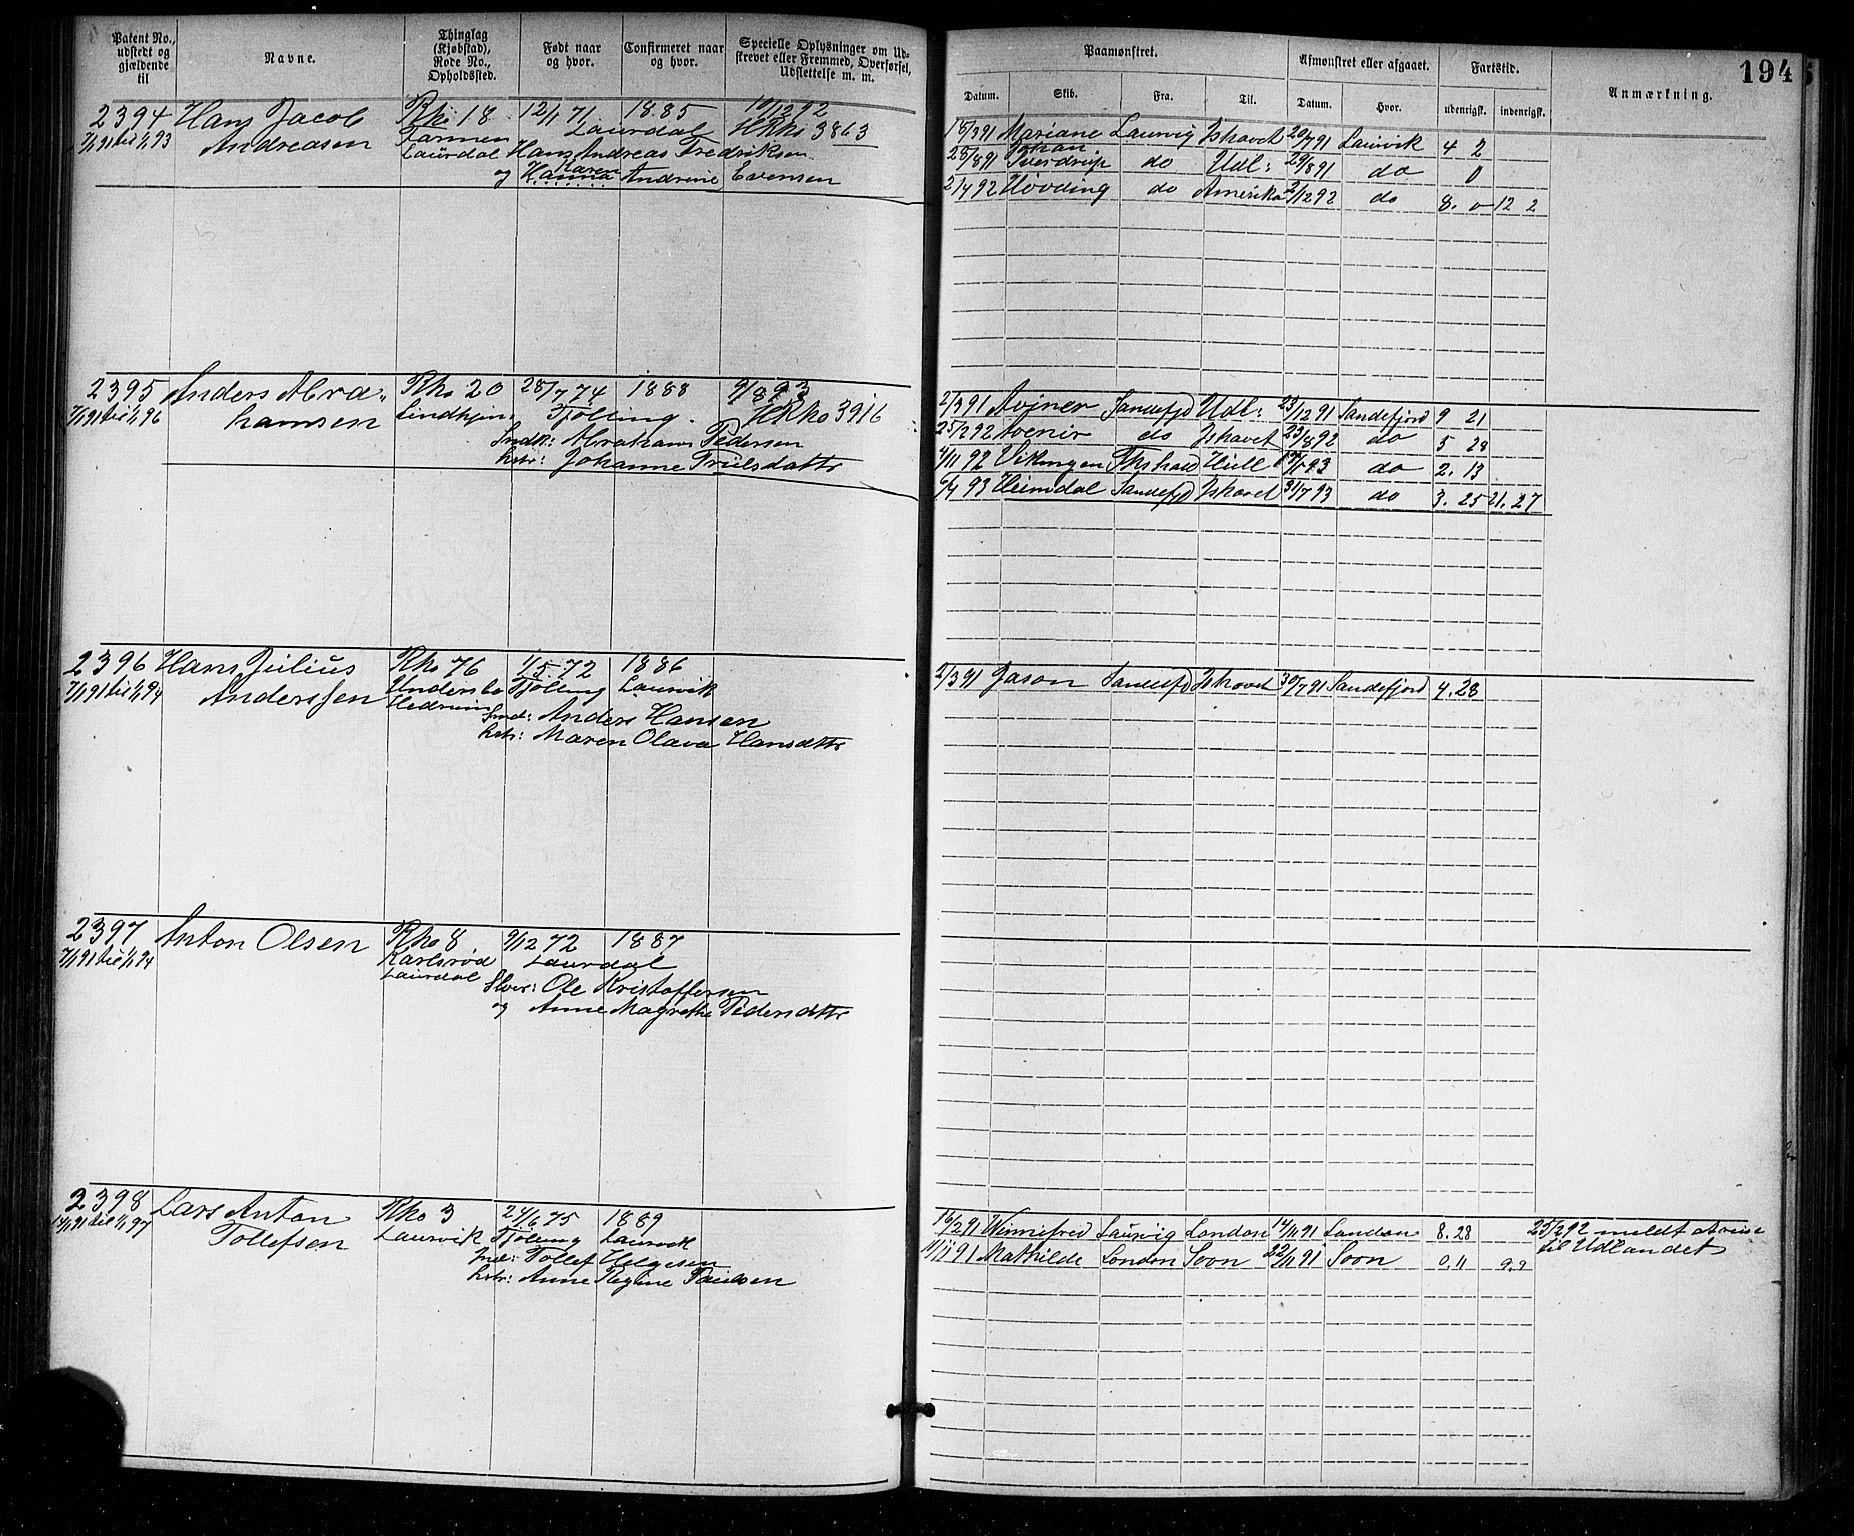 Patent No., udstedt og gjældende til
Navne.
Thinglag (Kjøbstad), Rode No., Opholdssted.
Født naar og hvor.
Confirmeret naar og hvor.
Specielle Oplysninger om Udskrevet eller Fremmed, Overførsel, Udslettelse m. m.
2394 Hans Jacob Rko 18 12/1 71 1885 10/12 92
7/1 91 til 1/1 93 Andreasen Farmen Laurdal HRko 3863
Laurdal Hans Andreas Fredriksen
Karen
og Hanna Andrine Evensen
2395 Anders Abra- Rko 20 28/7 74 1888 9/8 93
7/1 91 til 1/1 96 hamsen Lindhjem Tjölling. HRko 3916
Indk: Abraham Pedersen
hstr: Johanne Trulsdattr
2396 Hans Julius Rko 76 1/5 72 1886
7/1 91 til 1/1 94 Anderssen Undersbo Tjölling Laurvik
Hedrum Smd: Anders Hansen
hstr: Maren Olava Hansdattr
2397 Anton Olsen Rko 8 9/12 72 1887
7/1 91 til 1/1 94 Karlsrød Laurdal
Laurdal Slvr: Ole Kristoffersen
og Anne Magrethe Pedersdattr
2398 Lars Anton Rko 3 24/6 75 1889
14/1 91 til 1/1 97 Tollefsen Laurvik Tjölling Laurvik
Tollef Helgesen
hstr: Anne Regine Paulsen
194
Paamønstret.
Afmønstret eller afgaaet.
Fartstid.
Anmærkning.
Datum. Skib. Fra. Til. Datum. Hvor. udenrigsk. indenrigsk.
18/3 91 Mariane Laurvig Ishavet 20/7 91 Laurvik 4 2
Johan
28/8 91 Sverdrup do Udl: 29/8 91 do 0
2/4 92 Høvding do Amerika 2/12 92 do 8. 0 12 2
2/3 91 Avjner Sandefjd Udl: 23/12 91 Sandefjord 9 21
25/2 92 Avenir do Ishavet 23/8 92 do 5 28
4/11 92 Vikingen Hull do 2. 13
6/4 93 Heimdal Sandefjd Ishavet 31/7 93 do 3. 25 21. 27
2/3 91 Jason Sandefjd Ishavet 30/7 91 Sandefjord 4. 28
16/2 91 Winnifred Laurvig London 14/11 91 London 8. 28 25/2 92 meldt atreise
11/11 91 Mathilde London Soon 22/11 91 Soon 0. 11 9. 9 til Udlandet